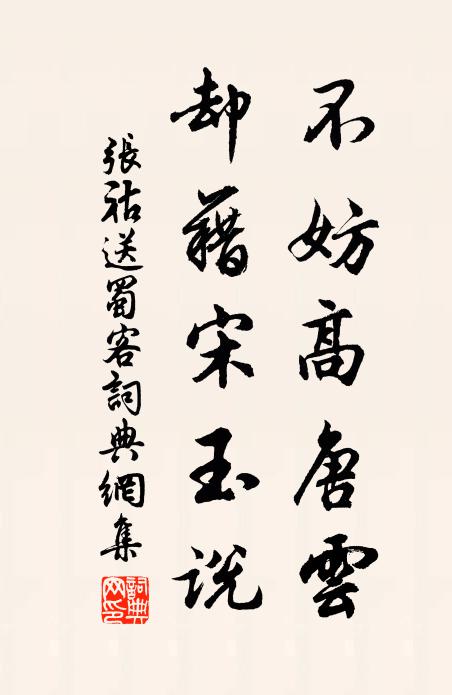 不妨高唐雲
却藉宋玉説
張祜送蜀客詞典網集
詞典網印